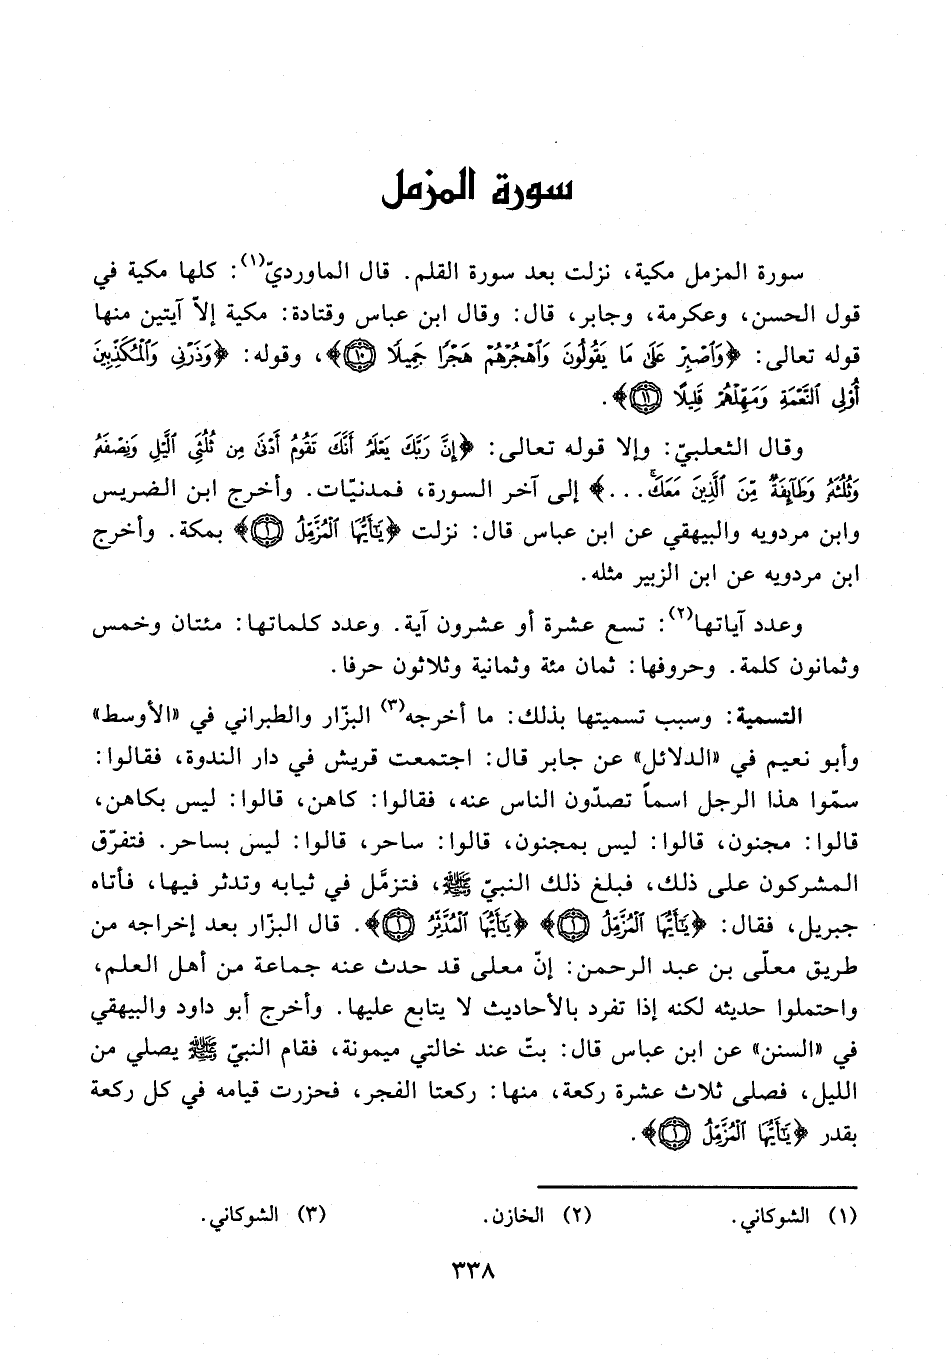 سورة المزمل
سورة المزمل مكية، نزلت بعد سورة القلم. قال الماورديّ(١): كلها مكية في
قول الحسن، وعكرمة، وجابر، قال: وقال ابن عباس وقتادة: مكية إلاّ آيتين منها
قوله تعالى: ﴿وَٱصۡبِرۡ عَلَىٰ مَا يَقُولُونَ وَٱهۡجُرۡهُمۡ هَجۡرٗا جَمِيلٗا ١٠﴾، وقوله: ﴿وَذَرۡنِي وَٱلۡمُكَذِّبِينَ
أُوْلِي ٱلنَّعۡمَةِ وَمَهِّلۡهُمۡ قَلِيلًا ١١﴾.
وقال الثعلبيّ: وإلا قوله تعالى: ﴿إِنَّ رَبَّكَ يَعۡلَمُ أَنَّكَ تَقُومُ أَدۡنَىٰ مِن ثُلُثَيِ ٱلَّيۡلِ وَنِصۡفَهُۥ
وَثُلُثَهُۥ وَطَآئِفَةٞ مِّنَ ٱلَّذِينَ مَعَكَۚ...﴾ إلى آخر السورة، فمدنيّات. وأخرج ابن الضريس
وابن مردويه والبيهقي عن ابن عباس قال: نزلت ﴿يَٰٓأَيُّهَا ٱلۡمُزَّمِّلُ ١﴾ بمكة. وأخرج
ابن مردويه عن ابن الزبير مثله.
وعدد آياتها(٢): تسع عشرة أو عشرون آية. وعدد كلماتها: مئتان وخمس
وثمانون كلمة. وحروفها: ثمان مئة وثمانية وثلاثون حرفا.
التسمية: وسبب تسميتها بذلك: ما أخرجه(٣) البزّار والطبراني في «الأوسط»
وأبو نعيم في «الدلائل» عن جابر قال: اجتمعت قريش في دار الندوة، فقالوا:
سمّوا هذا الرجل اسماً تصدّون الناس عنه، فقالوا: كاهن، قالوا: ليس بكاهن،
قالوا: مجنون، قالوا: ليس بمجنون، قالوا: ساحر، قالوا: ليس بساحر. فتفرّق
المشركون على ذلك، فبلغ ذلك النبيّ ﷺ، فتزمَّل في ثيابه وتدثر فيها، فأتاه
جبريل، فقال: ﴿يَٰٓأَيُّهَا ٱلۡمُزَّمِّلُ ١﴾ ﴿يَٰٓأَيُّهَا ٱلۡمُدَّثِّرُ ١﴾. قال البزّار بعد إخراجه من
طريق معلّى بن عبد الرحمن: إنّ معلى قد حدث عنه جماعة من أهل العلم،
واحتملوا حديثه لكنه إذا تفرد بالأحاديث لا يتابع عليها. وأخرج أبو داود والبيهقي
في «السنن» عن ابن عباس قال: بتّ عند خالتي ميمونة، فقام النبيّ ﷺ يصلي من
الليل، فصلى ثلاث عشرة ركعة، منها: ركعتا الفجر، فحزرت قيامه في كل ركعة
بقدر ﴿يَٰٓأَيُّهَا ٱلۡمُزَّمِّلُ ١﴾.
(١) الشوكاني. (٢) الخازن. (٣) الشوكاني.
٣٣٨